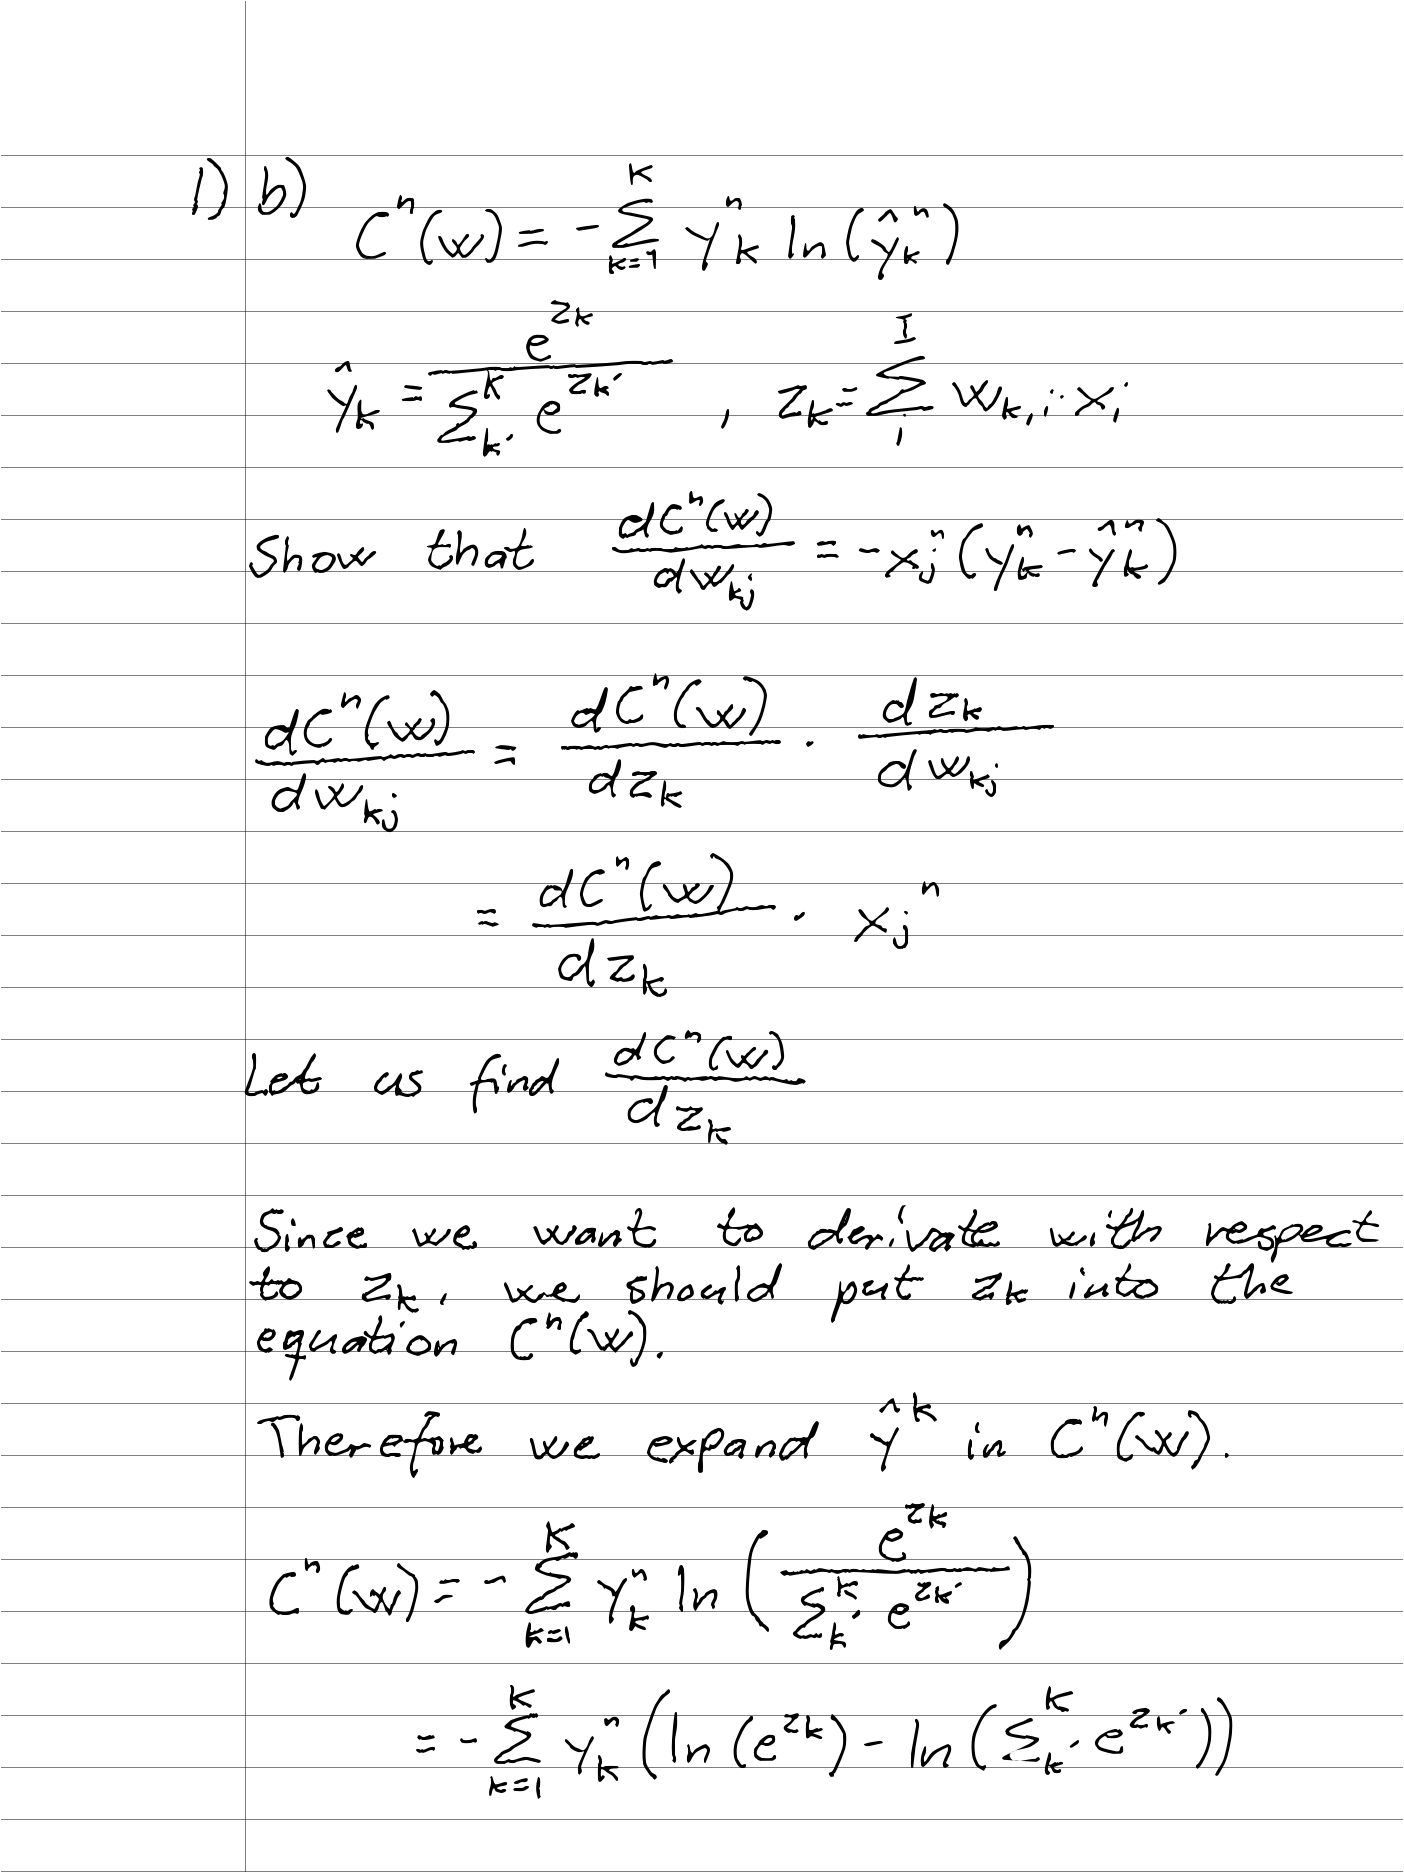 1) b) C^n(w) = - \sum_{k=1}^{K} y_k^n ln(\hat{y}_k^n)
\hat{y}_k = \frac{e^{z_k}}{\sum_{k'}^{K} e^{z_{k'}}} , z_k = \sum_{i}^{I} w_{k,i} · x_i
Show that \frac{dC^n(w)}{dw_{kj}} = -x_j^n (y_k^n - \hat{y}_k^n)
\frac{dC^n(w)}{dw_{kj}} = \frac{dC^n(w)}{dz_k} · \frac{dz_k}{dw_{kj}}
= \frac{dC^n(w)}{dz_k} · x_j^n
Let us find \frac{dC^n(w)}{dz_k}
Since we want to derivate with respect
to z_k, we should put z_k into the
equation C^n(w).
Therefore we expand \hat{y}^k in C^n(w).
C^n(w) = - \sum_{k=1}^{K} y_k^n ln ( \frac{e^{z_k}}{\sum_{k'}^{K} e^{z_{k'}}} )
= - \sum_{k=1}^{K} y_k^n ( ln(e^{z_k}) - ln( \sum_{k'}^{K} e^{z_{k'}} ))